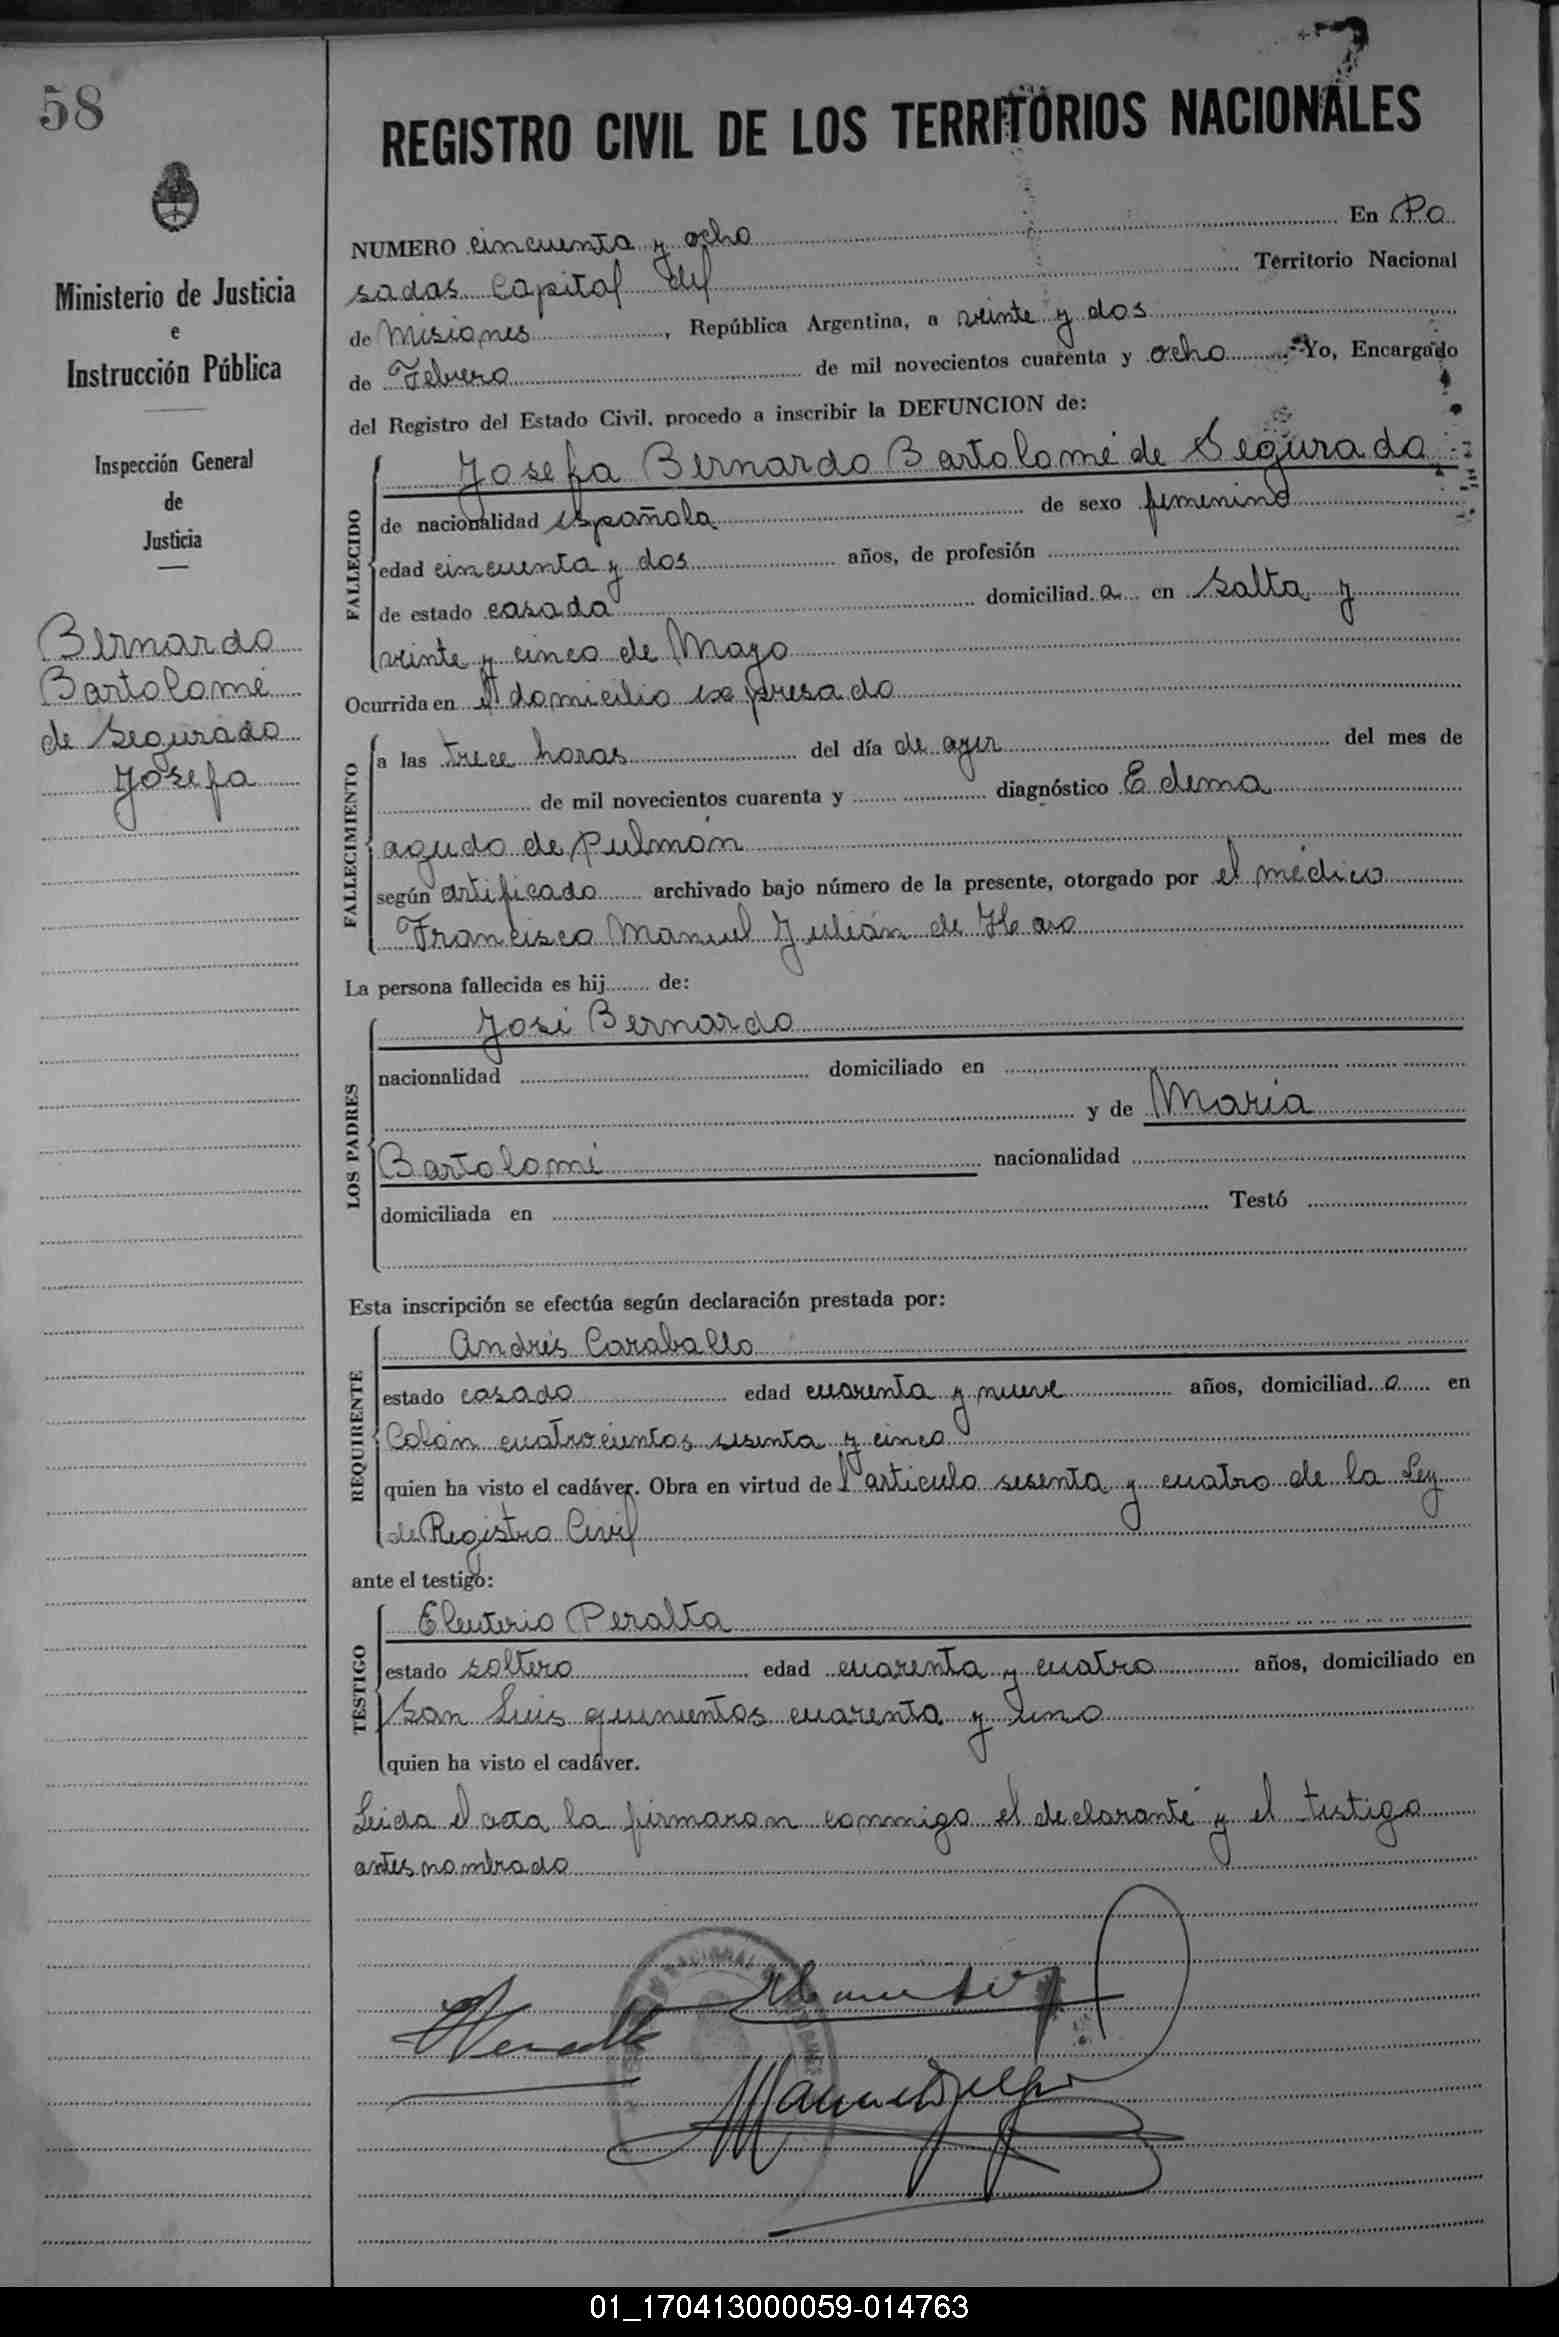 58
Ministerio de Justicia
e
Instrucción Pública
Inspección General
de
Justicia
Bernardo
Bartolomé
de Segurado
Josefa
REGISTRO CIVIL DE LOS TERRITORIOS NACIONALES
NUMERO cincuenta y ocho En Po
sadas Capital del Territorio Nacional
de Misiones, República Argentina, a veinte y dos
de Febrero de mil novecientos cuarenta y ocho Yo, Encargado
del Registro del Estado Civil, procedo a inscribir la DEFUNCION de:
FALLECIDO
Josefa Bernardo Bartolomé de Segurado
de nacionalidad española de sexo femenino
edad cincuenta y dos años, de profesión
de estado casada domiciliad a en Salta y
veinte y cinco de Mayo
Ocurrida en el domicilio expresado
FALLECIMIENTO
a las trece horas del día de ayer del mes de
de mil novecientos cuarenta y diagnóstico Edema
agudo de pulmón
según certificado archivado bajo número de la presente, otorgado por el médico
Francisco Manuel Julián de Haro
La persona fallecida es hij de:
LOS PADRES
José Bernardo
nacionalidad domiciliado en
y de María
Bartolomé nacionalidad
domiciliada en Testó
Esta inscripción se efectúa según declaración prestada por:
REQUIRENTE
Andrés Caraballo
estado casado edad cuarenta y nueve años, domiciliad o en
Colón cuatrocientos sesenta y cinco
quien ha visto el cadáver. Obra en virtud del artículo sesenta y cuatro de la Ley
de Registro Civil
ante el testigo:
TESTIGO
Eleuterio Peralta
estado soltero edad cuarenta y cuatro años, domiciliado en
San Luis quinientos cuarenta y uno
quien ha visto el cadáver.
Leida el acta la firmaron conmigo el declarante y el testigo
antes nombrado
01_170413000059-014763